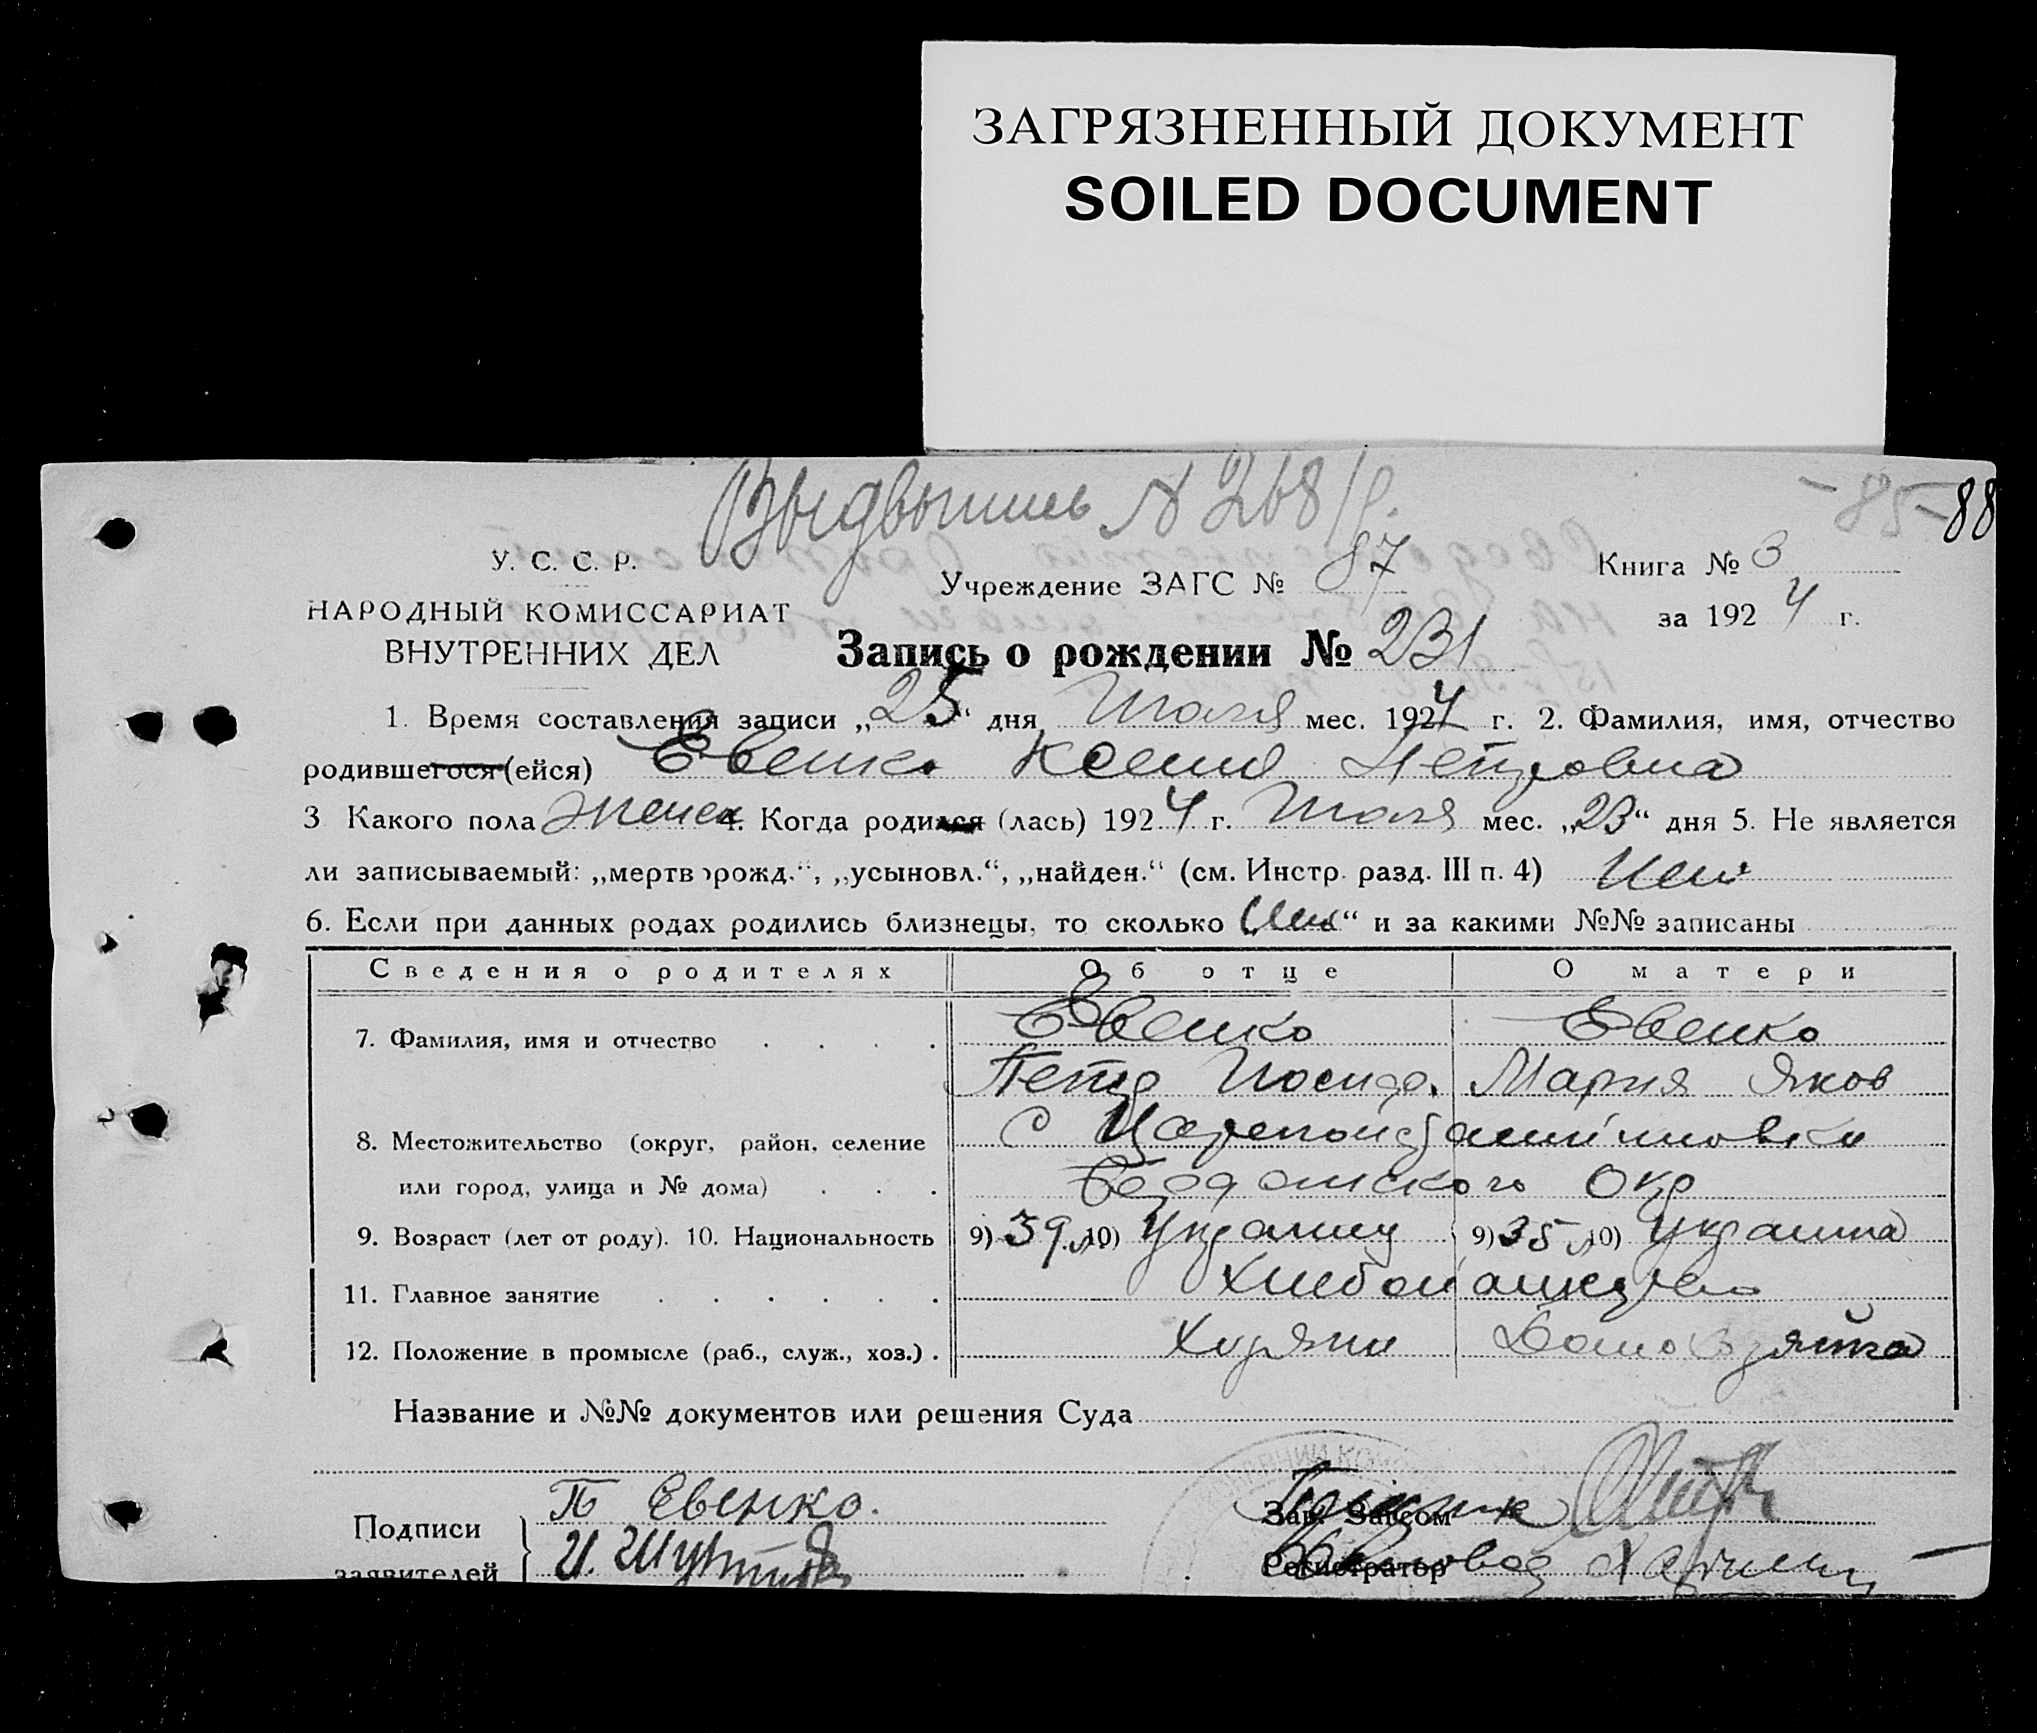 ЗАГРЯЗНЕННЫЙ ДОКУМЕНТ
SOILED DOCUMENT
-85- 88
У. С. С. Р.
НАРОДНЫЙ КОМИССАРИАТ
ВНУТРЕННИХ ДЕЛ
Учреждение ЗАГС № 87
Книга № 3
за 1924 г.
Запись о рождении № 231
1. Время составления записи „25“ дня Июля мес. 1924 г. 2. Фамилия, имя, отчество
родившегося (ейся) Евенко Ксения Петровна
3 Какого пола женск 4. Когда родился (лась) 1924 г. Июля мес. „23“ дня 5. Не является
ли записываемый: „мертворожд.“, „усыновл.“, „найден.“ (см. Инстр. разд. III п. 4) Нет
6. Если при данных родах родились близнецы, то сколько „Нет“ и за какими №№ записаны
Сведения о родителях Об отце О матери
7. Фамилия, имя и отчество . . . . Евенко Евенко
Петр Иосиф. Мария Яков
8. Местожительство (округ, район, селение с Цареконстантиновки
или город, улица и № дома) . . . Бердянского Окр
9. Возраст (лет от роду). 10. Национальность 9) 39 л. 10) Украинец 9) 35 л 10) Украинка
11. Главное занятие . . . . . .
12. Положение в промысле (раб., служ., хоз.) .
Название и №№ документов или решения Суда
Подписи П Евенко.
заявителей И.
Зав. Загсом
Регистратор